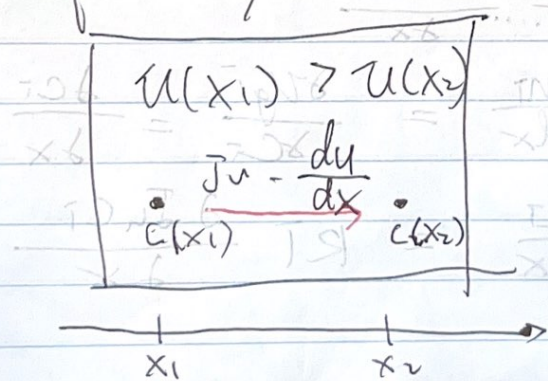 u(x₁) > u(x₂)
Ju - du/dx
C(x₁) C(x₂)
x₁ x₂